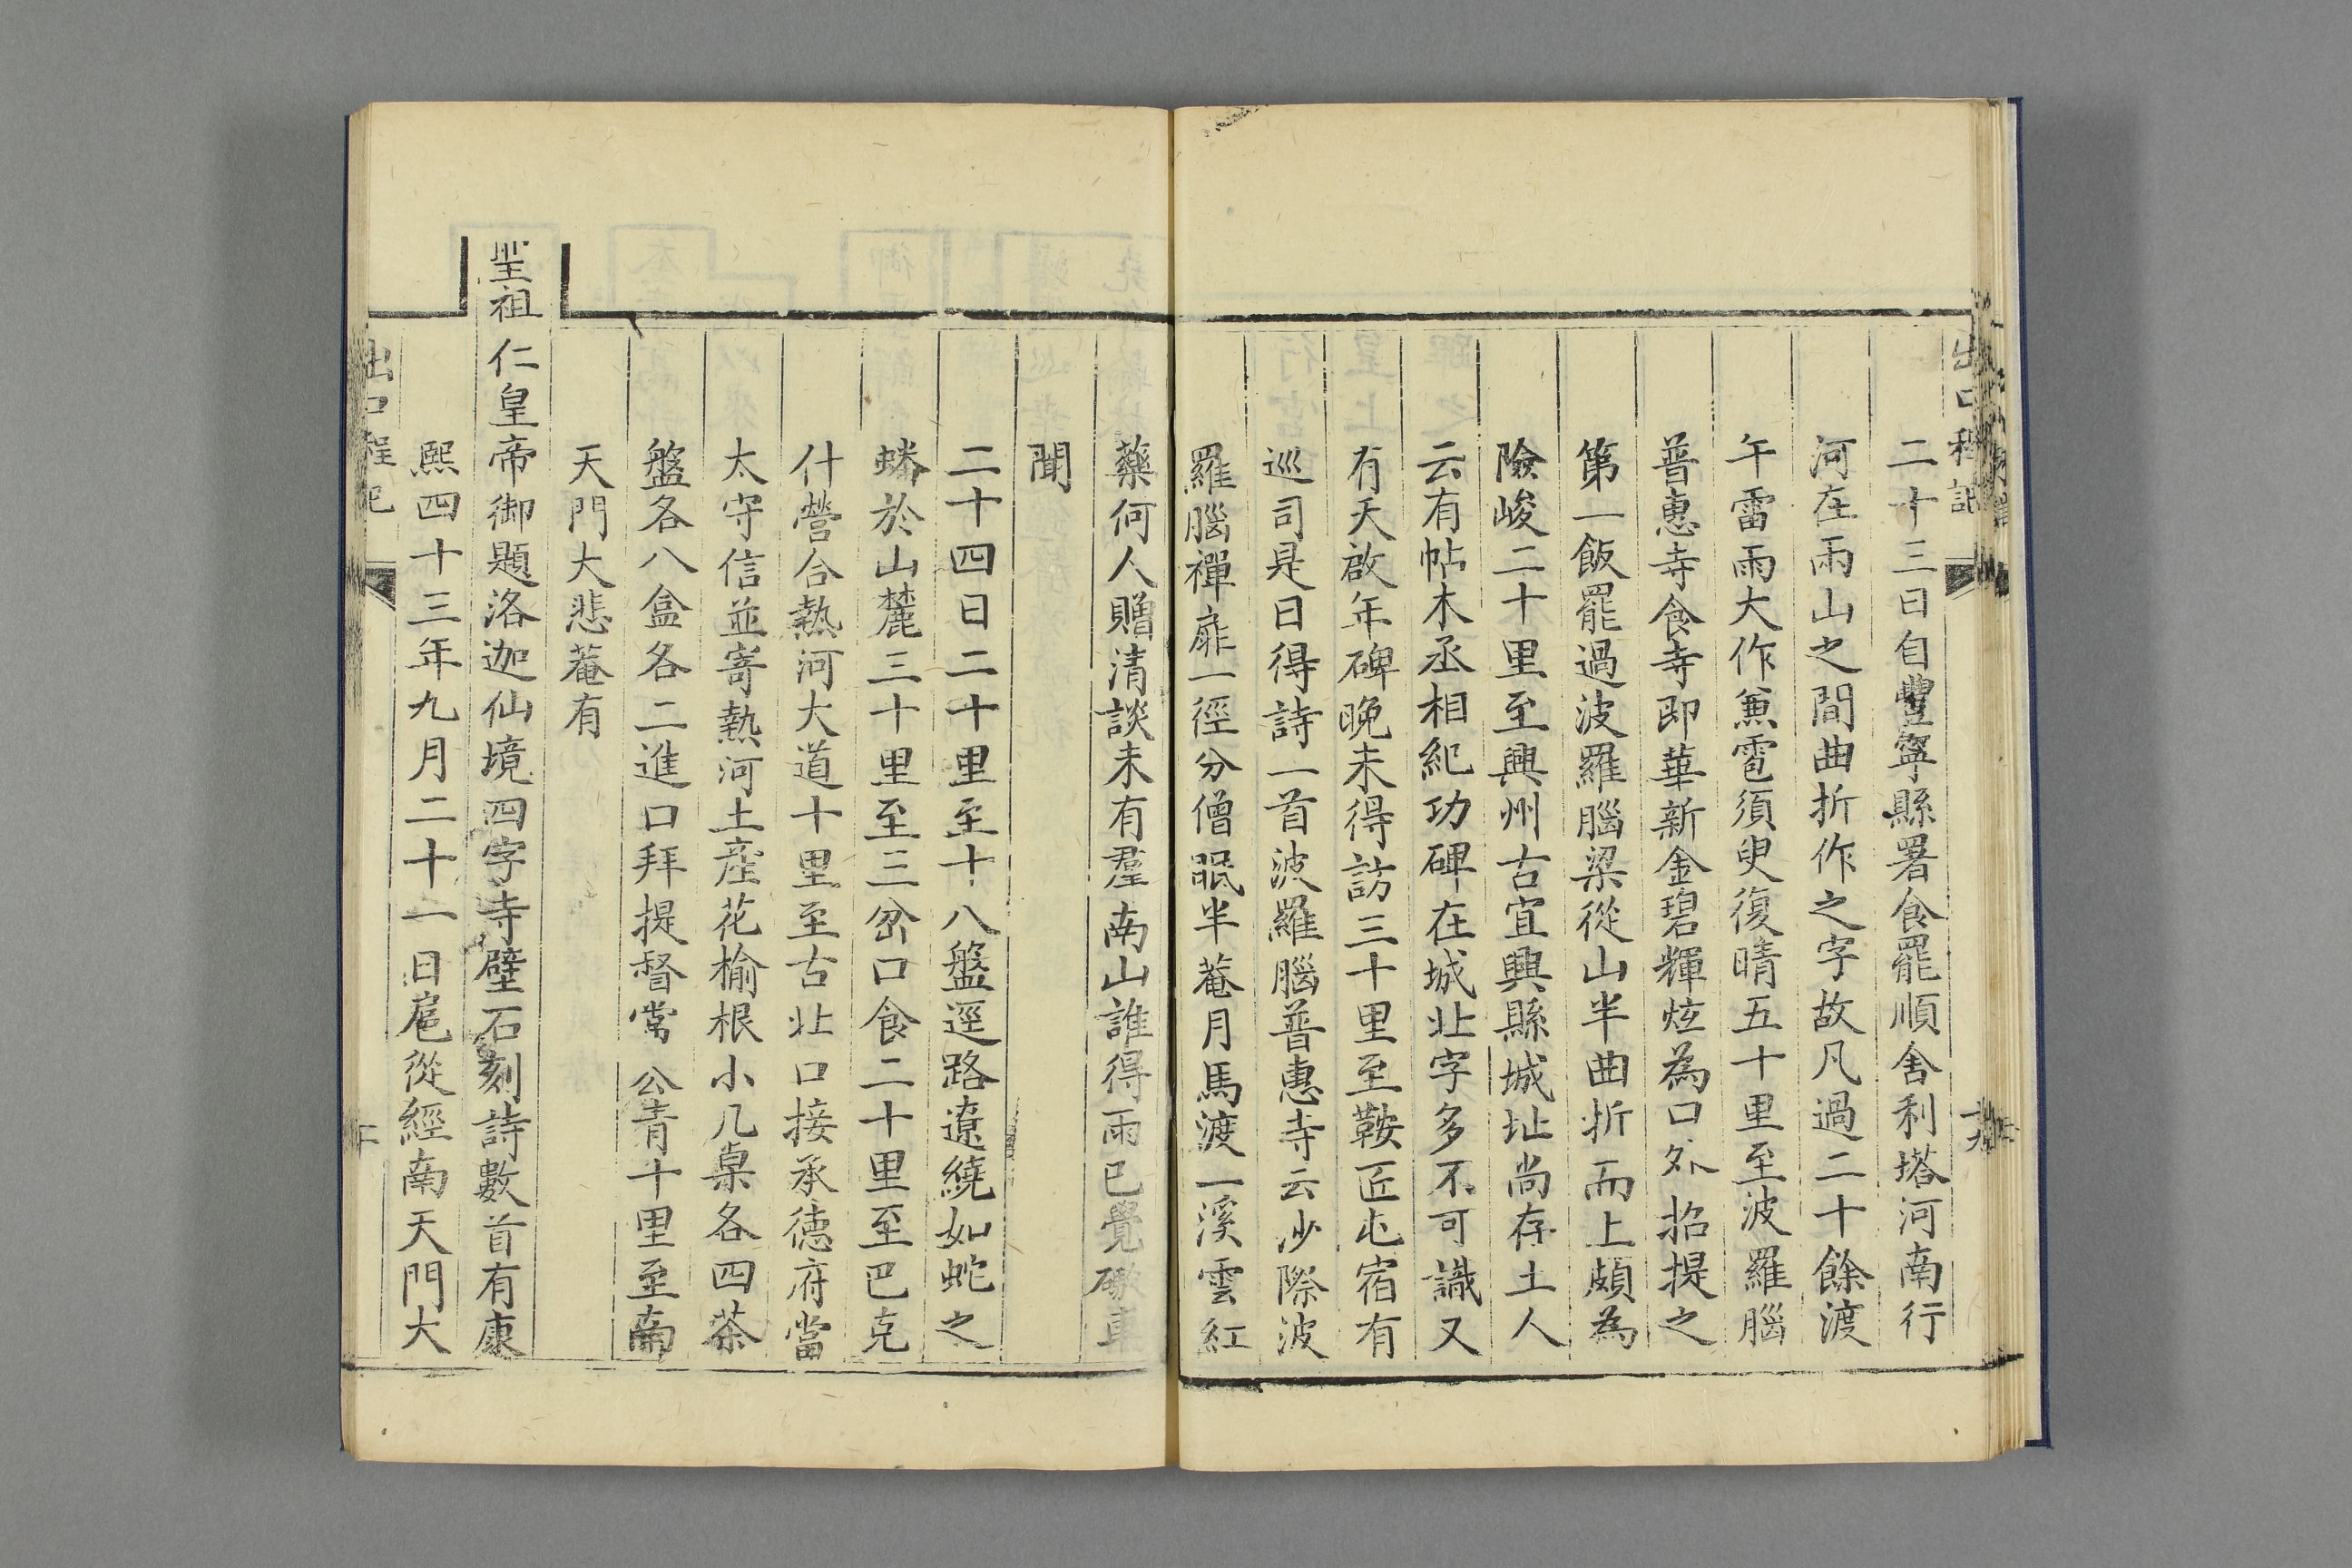 出口程記
十九
二十三日自豐寧縣署食罷順舍利塔河南行
河在兩山之間曲折作之字故凡過二十餘渡
午雷雨大作兼雹須臾復晴五十里至波羅腦
普惠寺食寺即華新金碧輝炫為口外招提之
第一飯罷過波羅腦梁從山半曲折而上頗為
險峻二十里至興州古宜興縣城址尚存土人
云有帖木丞相紀功碑在城北字多不可識又
有天啟年碑晚未得訪三十里至鞍匠屯宿有
巡司是日得詩一首波羅腦普惠寺云沙際波
羅腦禪扉一徑分僧眠半菴月馬渡一溪雲紅
藥何人贈清談未有羣南山誰得雨已覺礮車
聞
二十四日二十里至十八盤逕路遼繞如蛇之
蟠於山麓三十里至三岔口食二十里至巴克
什營合熱河大道十里至古北口接承德府當
太守信並寄熱河土產花榆根小几桌各四茶
盤各八盒各二進口拜提督常 公青十里至南
天門大悲菴有
聖祖仁皇帝御題洛迦仙境四字寺壁石刻詩數首有康
熙四十三年九月二十一日扈從經南天門大
出口程記